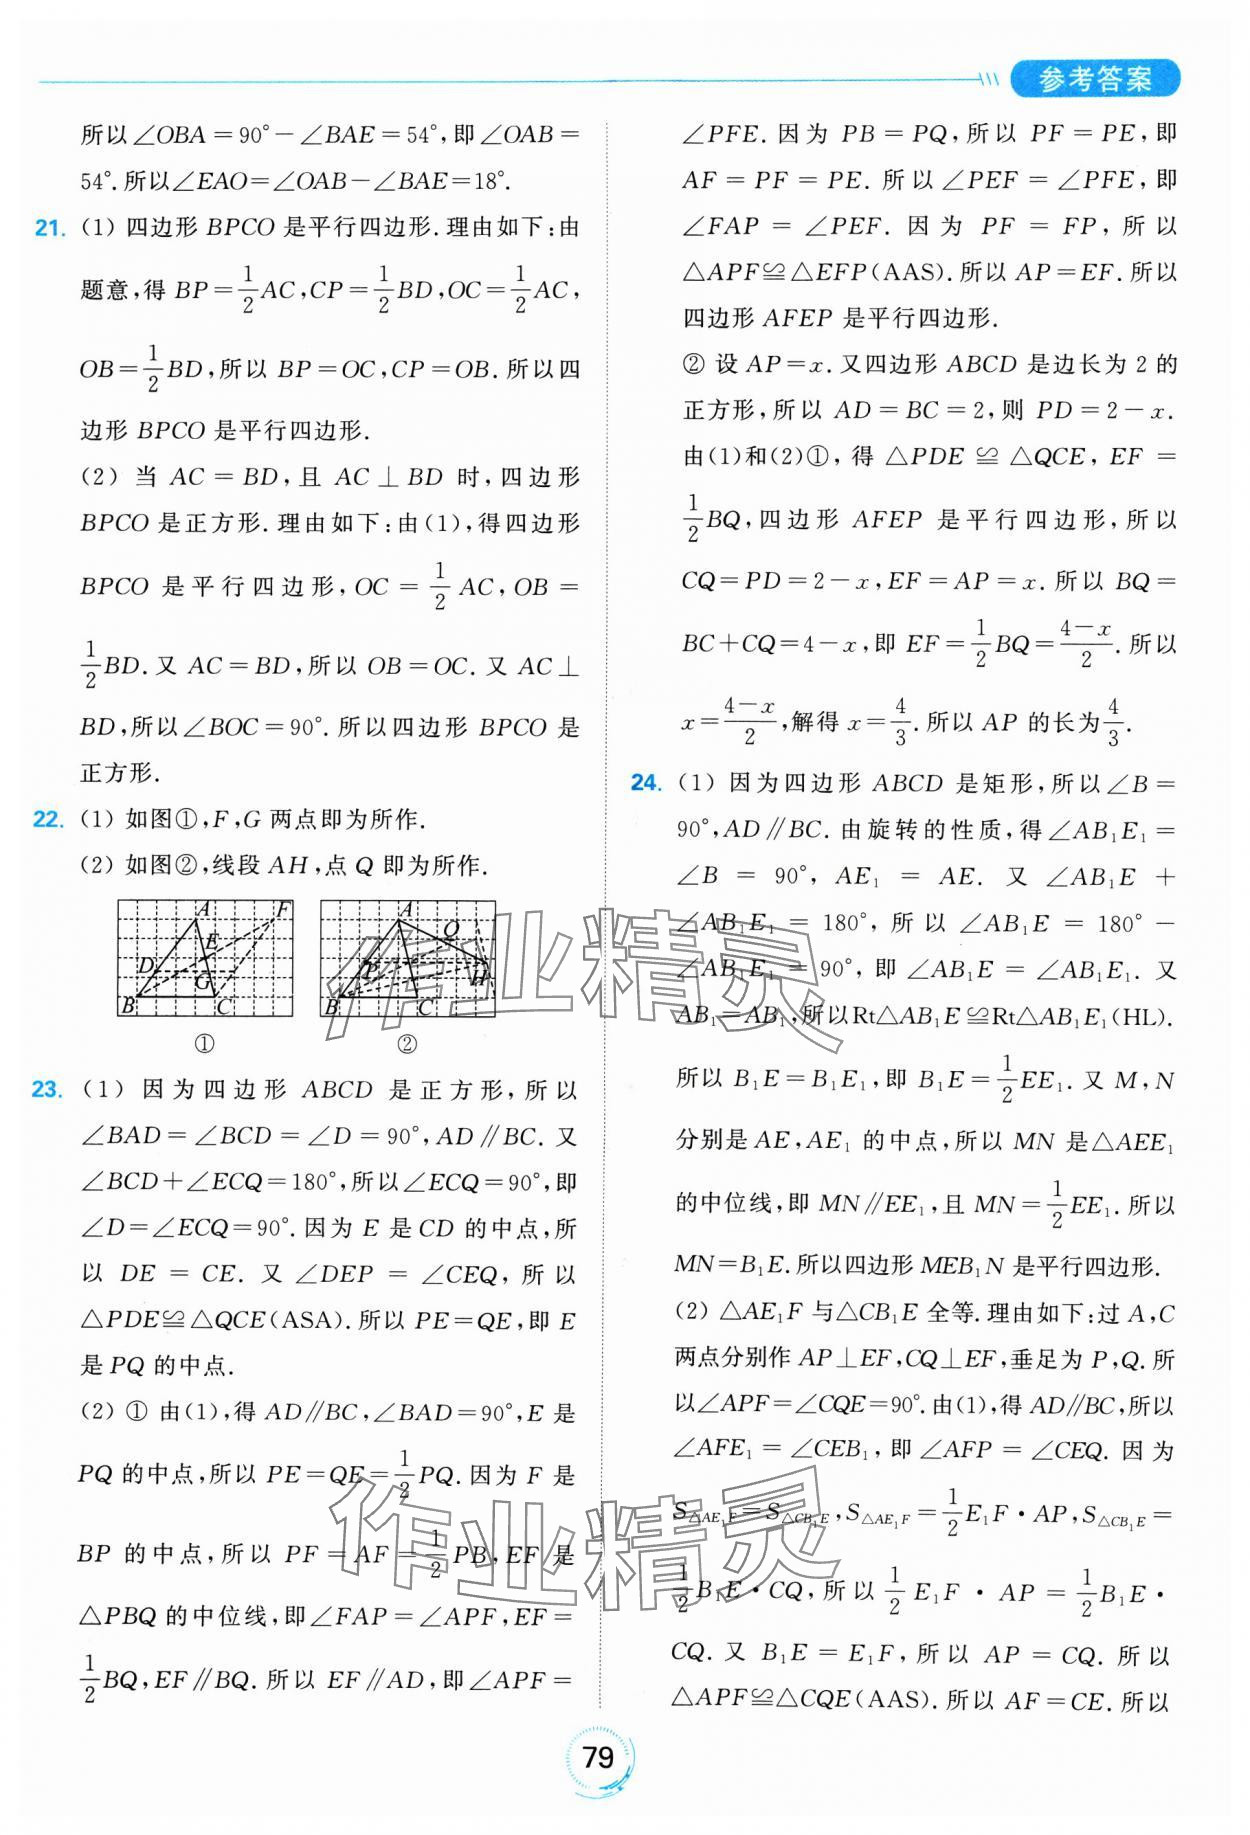 参考答案
所以∠OBA=90°-∠BAE=54°,即∠OAB=
54°.所以∠EAO=∠OAB-∠BAE=18°.
21. (1) 四边形 BPCO 是平行四边形.理由如下:由
题意,得 BP=1/2AC,CP=1/2BD,OC=1/2AC,
OB=1/2BD,所以 BP=OC,CP=OB.所以四
边形 BPCO 是平行四边形.
(2) 当 AC=BD,且 AC⊥BD 时,四边形
BPCO 是正方形.理由如下:由(1),得四边形
BPCO 是平行四边形,OC=1/2AC,OB=
1/2BD.又 AC=BD,所以 OB=OC.又 AC⊥
BD,所以∠BOC=90°.所以四边形 BPCO 是
正方形.
22. (1) 如图①,F,G 两点即为所作.
(2) 如图②,线段 AH,点 Q 即为所作.
A F E D G B C
①
A Q P H B C
②
23. (1) 因为四边形 ABCD 是正方形,所以
∠BAD=∠BCD=∠D=90°,AD∥BC.又
∠BCD+∠ECQ=180°,所以∠ECQ=90°,即
∠D=∠ECQ=90°.因为 E 是 CD 的中点,所
以 DE=CE.又∠DEP=∠CEQ,所以
△PDE≌△QCE(ASA).所以 PE=QE,即 E
是 PQ 的中点.
(2) ① 由(1),得 AD∥BC,∠BAD=90°,E 是
PQ 的中点,所以 PE=QE=1/2PQ.因为 F 是
BP 的中点,所以 PF=AF=1/2PB,EF 是
△PBQ 的中位线,即∠FAP=∠APF,EF=
1/2BQ,EF∥BQ.所以 EF∥AD,即∠APF=
∠PFE.因为 PB=PQ,所以 PF=PE,即
AF=PF=PE.所以∠PEF=∠PFE,即
∠FAP=∠PEF.因为 PF=FP,所以
△APF≌△EFP(AAS).所以 AP=EF.所以
四边形 AFEP 是平行四边形.
② 设 AP=x.又四边形 ABCD 是边长为 2 的
正方形,所以 AD=BC=2,则 PD=2-x.
由(1)和(2)①,得△PDE≌△QCE,EF=
1/2BQ,四边形 AFEP 是平行四边形,所以
CQ=PD=2-x,EF=AP=x.所以 BQ=
BC+CQ=4-x,即 EF=1/2BQ=(4-x)/2.所以
x=(4-x)/2,解得 x=4/3.所以 AP 的长为4/3.
24. (1) 因为四边形 ABCD 是矩形,所以∠B=
90°,AD∥BC.由旋转的性质,得∠AB₁E₁=
∠B=90°,AE₁=AE.又∠AB₁E+
∠AB₁E₁=180°,所以∠AB₁E=180°-
∠AB₁E₁=90°,即∠AB₁E=∠AB₁E₁.又
AB₁=AB₁,所以Rt△AB₁E≌Rt△AB₁E₁(HL).
所以 B₁E=B₁E₁,即 B₁E=1/2EE₁.又 M,N
分别是 AE,AE₁ 的中点,所以 MN 是△AEE₁
的中位线,即 MN∥EE₁,且 MN=1/2EE₁.所以
MN=B₁E.所以四边形 MEB₁N 是平行四边形.
(2) △AE₁F 与△CB₁E 全等.理由如下:过 A,C
两点分别作 AP⊥EF,CQ⊥EF,垂足为 P,Q.所
以∠APF=∠CQE=90°.由(1),得 AD∥BC,所以
∠AFE₁=∠CEB₁,即∠AFP=∠CEQ.因为
S△AE₁F=S△CB₁E,S△AE₁F=1/2E₁F·AP,S△CB₁E=
1/2B₁E·CQ,所以1/2E₁F·AP=1/2B₁E·
CQ.又 B₁E=E₁F,所以 AP=CQ.所以
△APF≌△CQE(AAS).所以 AF=CE.所以
作业精灵
作业精灵
79